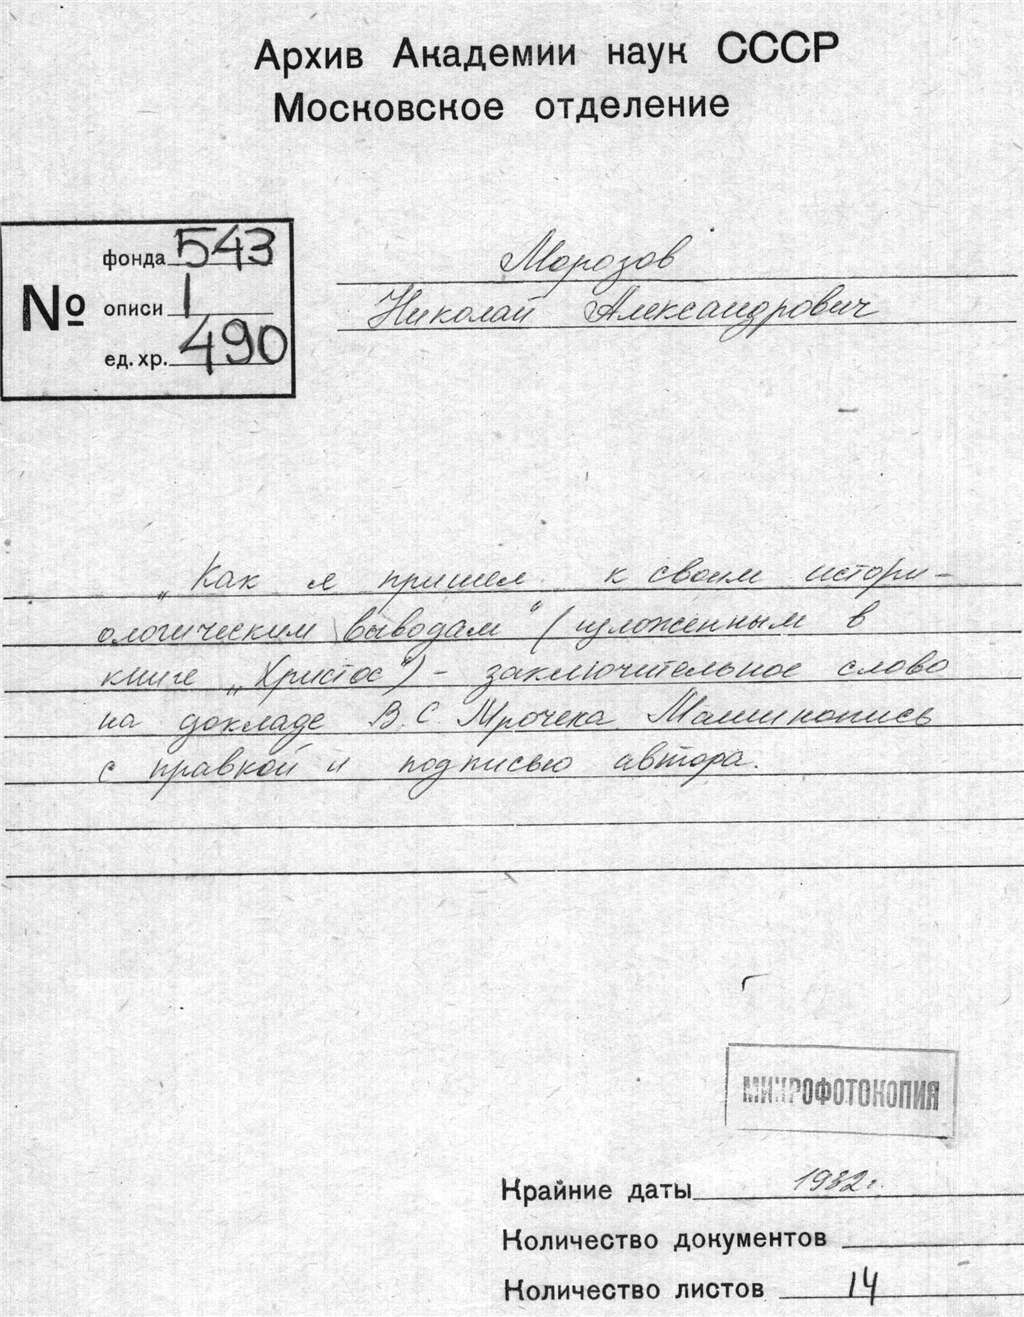 Архив Академии наук СССР
Московское отделение
№
фонда 543
описи 1
ед. хр. 490
Морозов
Николай Александрович
„Как я пришел к своим истори-
ологическим выводам" (изложенным в
книге „Христос") - заключительное слово
на докладе В.С. Мрочека. Машинопись
с правкой и подписью автора.
МИКРОФОТОКОПИЯ
Крайние даты 1932 г.
Количество документов
Количество листов 14